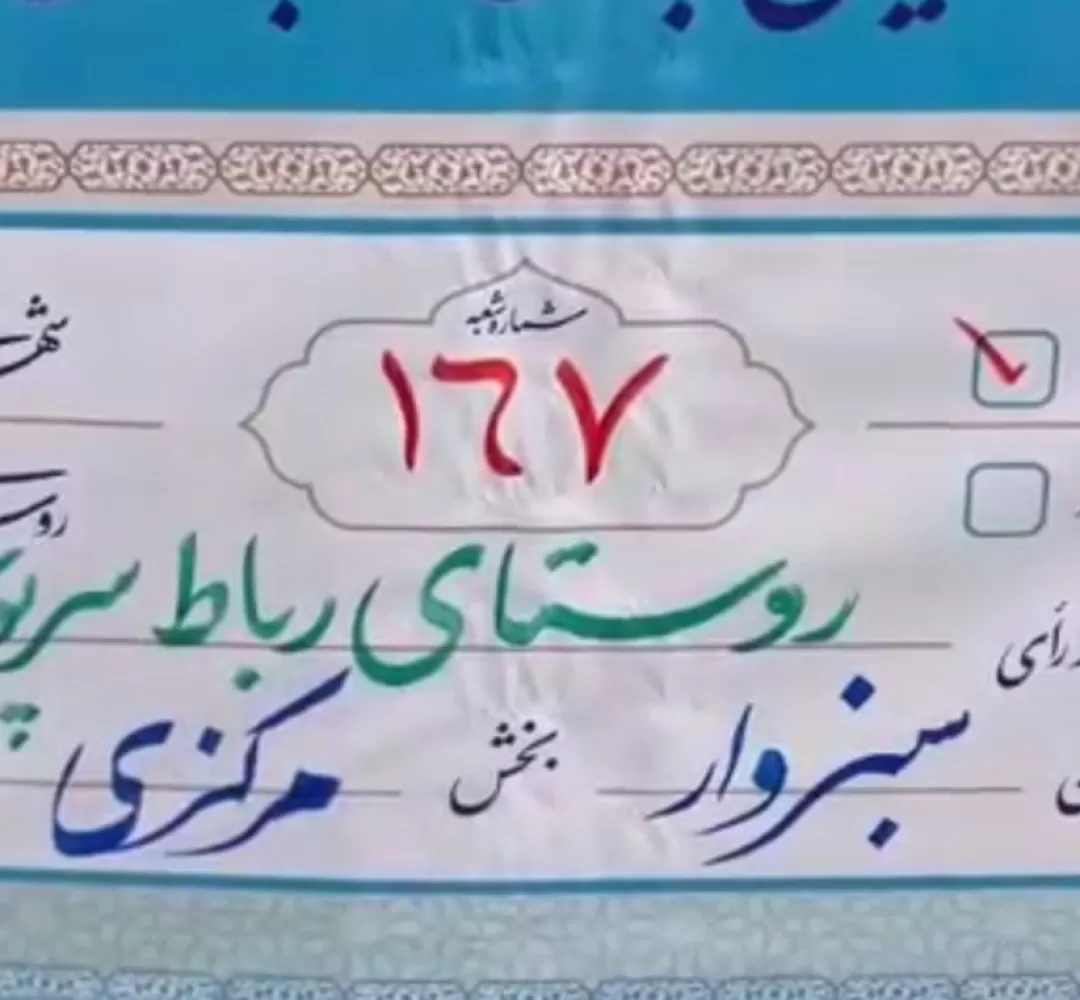 شماره شعبه
۱۶۷
روستای رباط
رأی
سبزوار بخش مرکزی